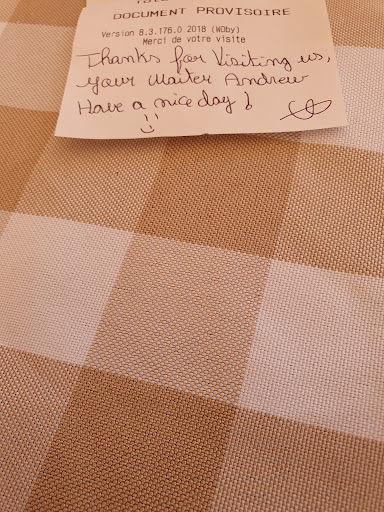 DOCUMENT PROVISOIRE
Version 8.3.176.0 2018 (WOby)
Merci de votre visite
Thanks for Visiting us,
your Waiter Andrew
Have a nice day !